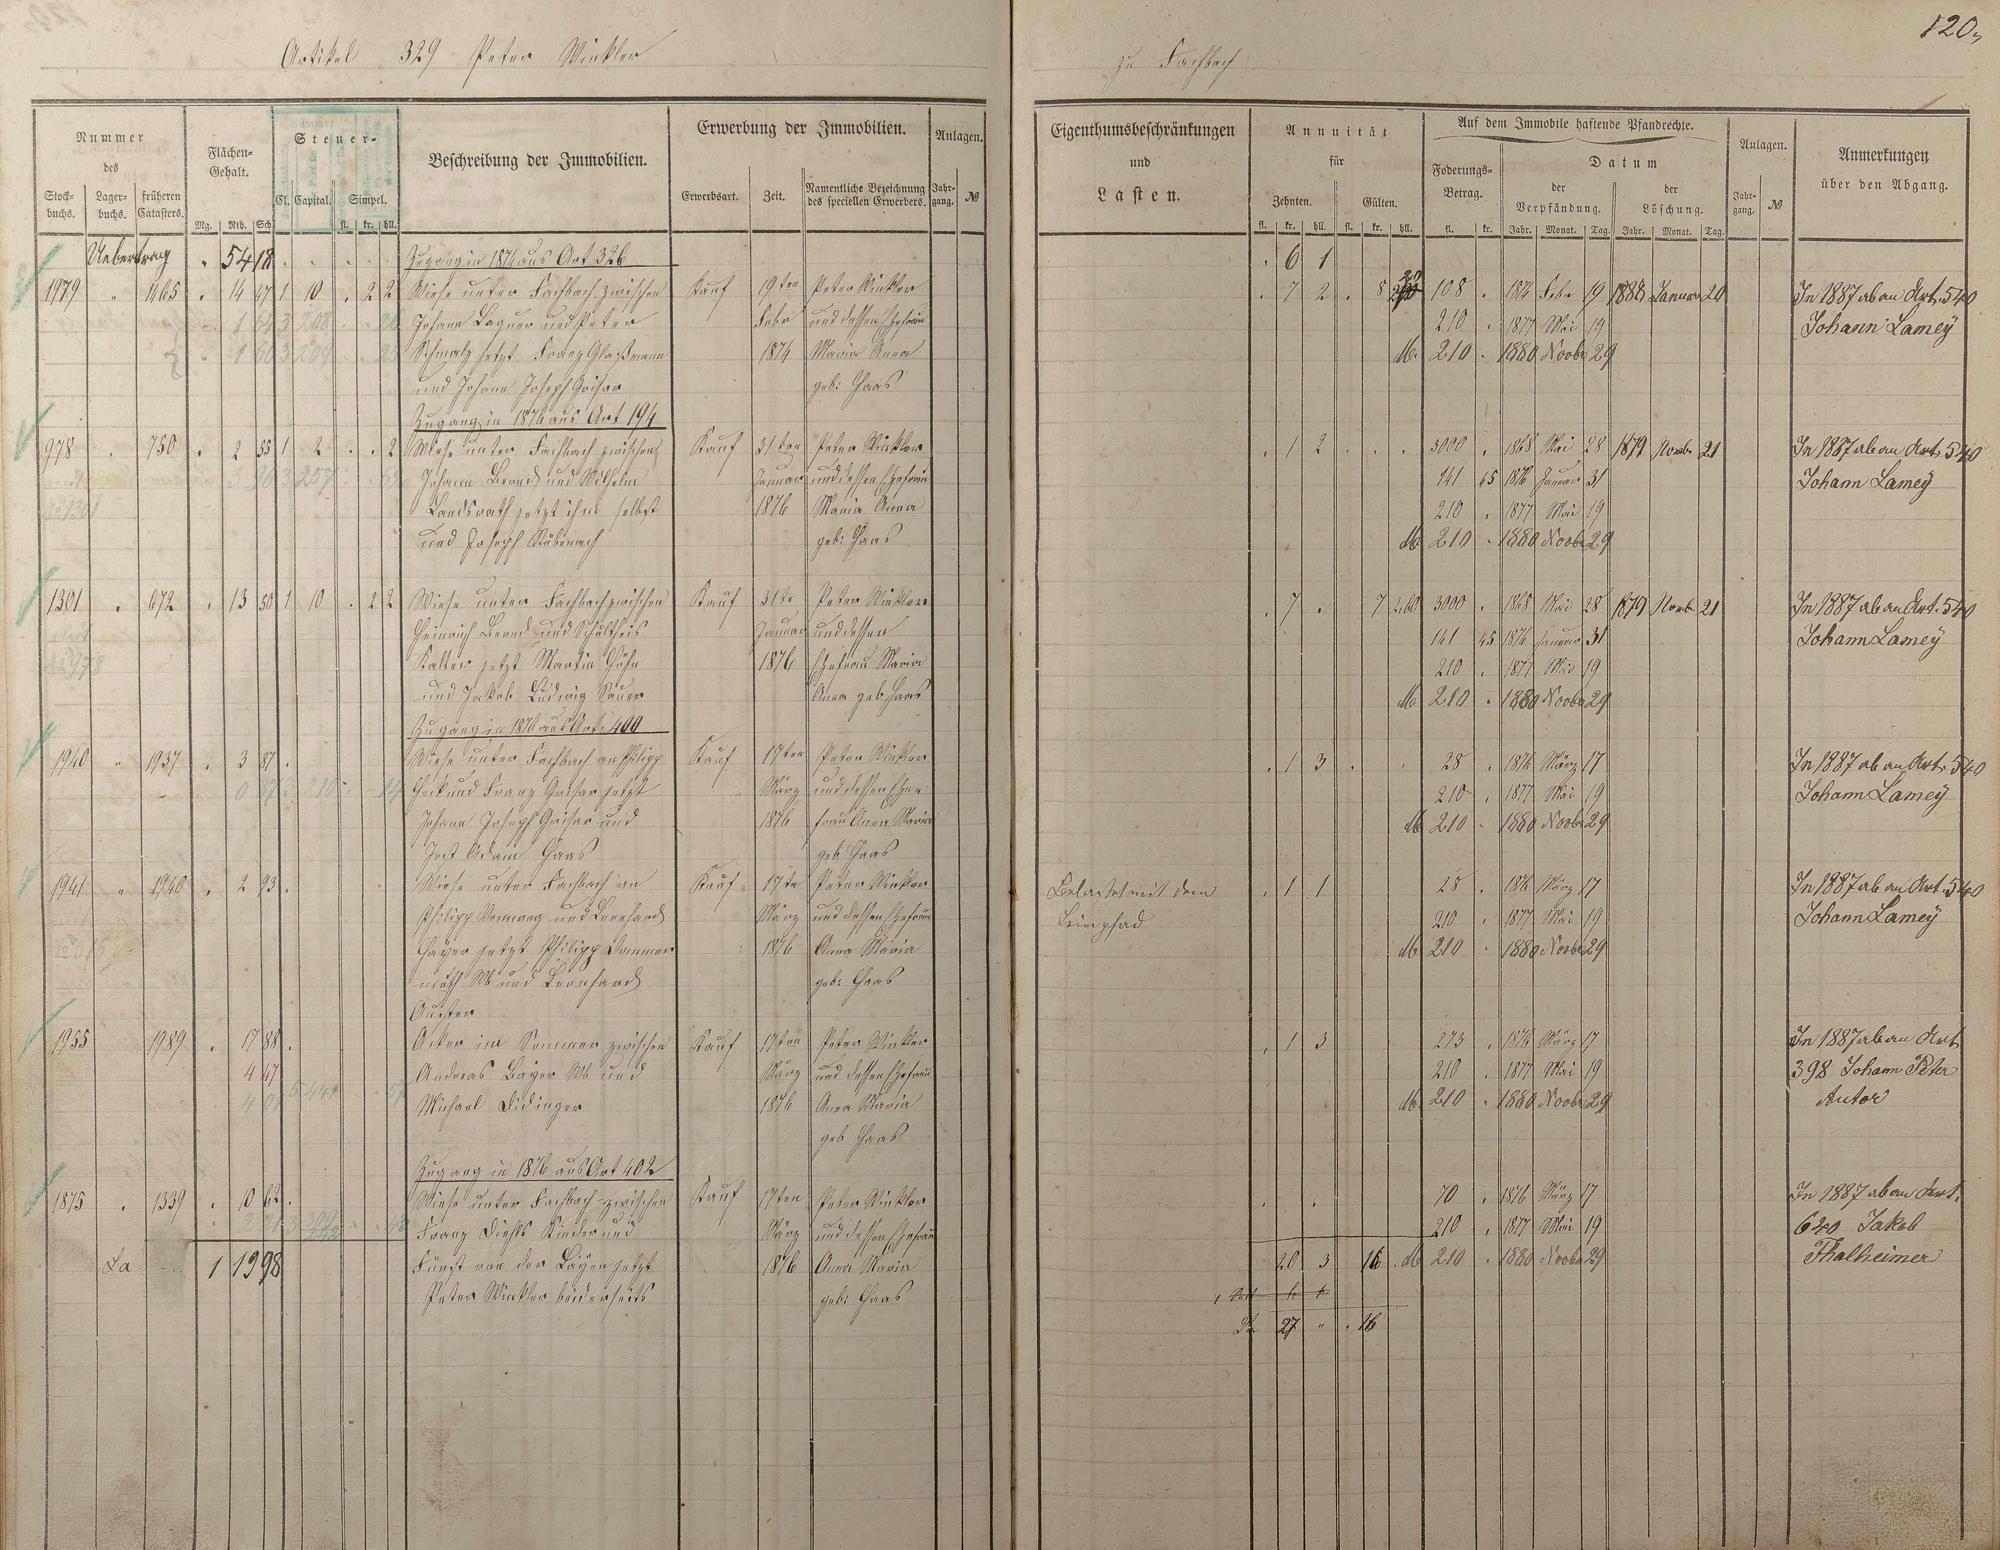 120.
Artikel 329 Peter Winkler
zu Fachbach
Nummer
des
Stock-
buchs.
Lager-
buchs.
früheren
Catasters.
Flächen-
Gehalt.
Mg. Rth. Sch
Steuer-
Cl. Capital. Simpel.
fl. kr. hll.
Beschreibung der Immobilien.
Erwerbung der Immobilien.
Erwerbsart. Zeit.
Namentliche Bezeichnung
des speciellen Erwerbers.
Anlagen.
Jahr-
gang.
№
Eigenthumsbeschränkungen
und
Lasten.
Annuität
für
Zehnten. Gülten.
fl. kr. hll. fl. kr. hll.
Auf dem Immobile haftende Pfandrechte.
Foderungs-
Betrag.
fl. kr.
Datum
der
Verpfändung.
der
Löschung.
Jahr. Monat. Tag. Jahr. Monat. Tag.
Anlagen.
Jahr-
gang.
№
Anmerkungen
über den Abgang.
Uebertrag 54 18 Zugang in 1874 aus Art 326 6 1
1979 " 1465 14 47 1 10 2 2 Wiese unter Fachbach zwischen Kauf 19ten Peter Winkler 7 2 8 108 1874 Febr 19 1888 Januar 20 In 1887 ab an Art. 540
1 64 3 208 Johann Laquer und Peter Febr und dessen Ehefrau 210 1877 Mai 19 Johann Lamey
1 60 3 209 Schmalz jetzt Franz Glaßmann 1874 Maria Anna M. 210 1880 Novbr 29
und Johann Joseph Grisar geb: Haas
Zugang in 1876 aus Art 194
978 750 2 55 1 2 2 Wiese unter Fachbach zwischen Kauf 31ten Peter Winkler 1 2 3000 1868 Mai 28 1879 Novbr 21 In 1887 ab an Art. 540
3 257 Johann Brand und Wilhelm Januar und dessen Ehefrau 141 45 1876 Januar 31 Johann Lamey
Landsrath jetzt ihm selbst 1876 Maria Anna 210 1877 Mai 19
und Joseph Rübenach geb: Haas M 210 1880 Novbr 29
1301 672 13 50 1 10 2 2 Wiese unter Fachbach zwischen Kauf 31te Peter Winkler 7 7 2.60 3000 1868 Mai 28 1879 Novbr 21 In 1887 ab an Art. 540
Heinrich Brand und Schultheis Januar und dessen 141 45 1876 Januar 31 Johann Lamey
Kalter jetzt Martin Höhn 1876 Ehefrau Maria 210 1877 Mai 19
und Jakob Ludwig Bauer Anna geb Haas M 210 1880 Novbr 29
Zugang in 1876 aus Art. 400
1940 " 1937 3 87 Wiese unter Fachbach an Philipp Kauf 17ten Peter Winkler 1 3 28 1876 März 17 In 1887 ab an Art. 540
und Franz Grisar jetzt März und dessen Ehe- 210 1877 Mai 19 Johann Lamey
Johann Joseph Grisar und 1876 frau Anna Maria M 210 1880 Novbr 29
Jost Adam Haas geb Haas
1941 " 1940 2 93 Wiese unter Fachbach an Kauf 17te Peter Winkler Belastet mit dem 1 1 28 1876 März 17 In 1887 ab an Art. 540
Philipp und Leonhard März und dessen Ehefrau Leinpfad 210 1877 Mai 19 Johann Lamey
jetzt Philipp Dommer 1876 Anna Maria M 210 1880 Novbr 29
muth Wb und Leonhard geb: Haas
1955 1989 17 88 Acker im Sommer zwischen Kauf 17ten Peter Winkler 1 3 273 1876 März 17 In 1887 ab an Art
4 47 Andreas Bayer Wb und März und dessen Ehefrau 210 1877 Mai 19 398 Johann Peter
Michael Didinger 1876 Anna Maria M. 210 1880 Novbr 29 Autor
geb Haas
Zugang in 1876 aus Art 402
1875 1339 10 62 Wiese unter Fachbach zwischen Kauf 17ten Peter Winkler 70 1876 März 17 In 1887 ab an Art.
Franz Diehls Kinder und März und dessen Ehefrau 210 1877 Mai 19 640 Jakob
La 1 19 98 Fürst von der Layen jetzt 1876 Anna Maria 20 3 16 M 210 1880 Novbr 29 Thalheimer
Peter Winkler beiderseits geb: Haas 6 1
27 " 16